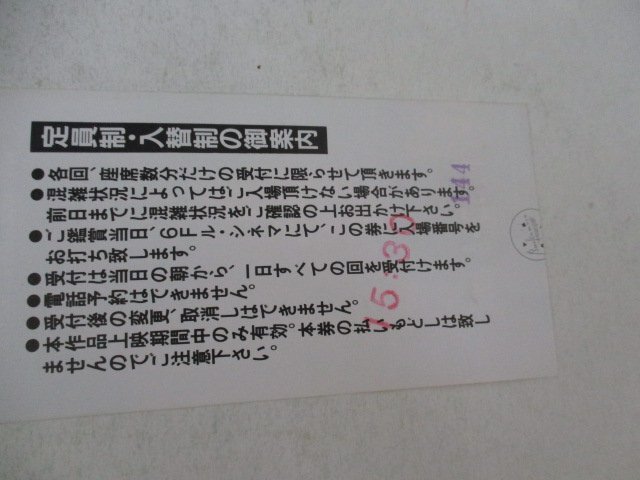 定員制・入替制の御案内
●各回、座席数分だけの受付に限らせて頂きます。
●混雑状況によってはご入場頂けない場合があります。
前日までに混雑状況をご確認の上お出かけ下さい。
●ご鑑賞当日、6Fル・シネマにて、この券に入場番号を
お打ち致します。
●受付は当日の朝から、一日すべての回を受付けます。
●電話予約はできません。
●受付後の変更、取消しはできません。
●本作品上映期間中のみ有効。本券の払いもどしは致し
ませんのでご注意下さい。
144
15:30